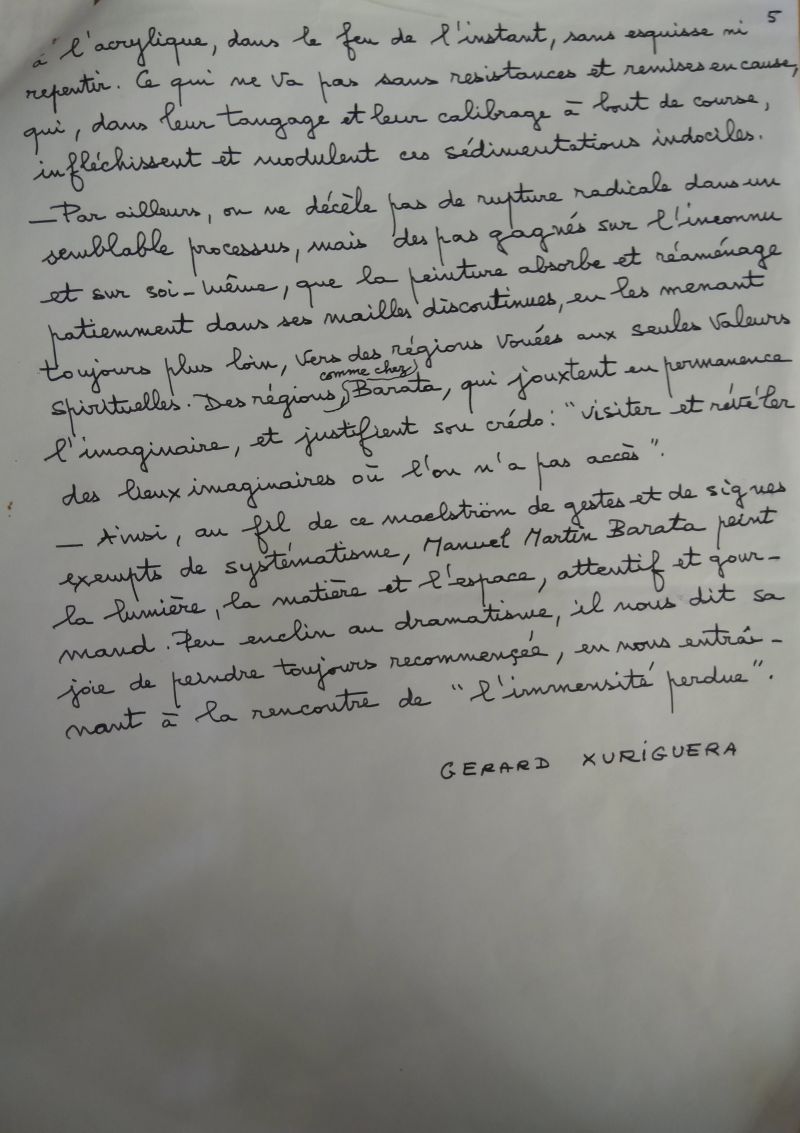 5
à l'acrylique, dans le feu de l'instant, sans esquisse ni
repentir. Ce qui ne va pas sans resistances et remises en cause,
qui, dans leur tangage et leur calibrage à bout de course,
infléchissent et modulent ces sédimentations indociles.
— Par ailleurs, on ne décèle pas de rupture radicale dans un
semblable processus, mais des pas gagnés sur l'inconnu
et sur soi-même, que la peinture absorbe et réaménage
patiemment dans ses mailles discontinues, en les menant
toujours plus loin, vers des régions vouées aux seules valeurs
spirituelles. Des régions, comme chez Barata, qui jouxtent en permanence
l'imaginaire, et justifient son crédo : "visiter et révéler
des lieux imaginaires où l'on n'a pas accès".
— Ainsi, au fil de ce maelström de gestes et de signes
exempts de systématisme, Manuel Martin Barata peint
la lumière, la matière et l'espace, attentif et gour-
mand. Peu enclin au dramatisme, il nous dit sa
joie de peindre toujours recommençée, en nous entraî-
nant à la rencontre de "l'immensité perdue".
GERARD XURIGUERA